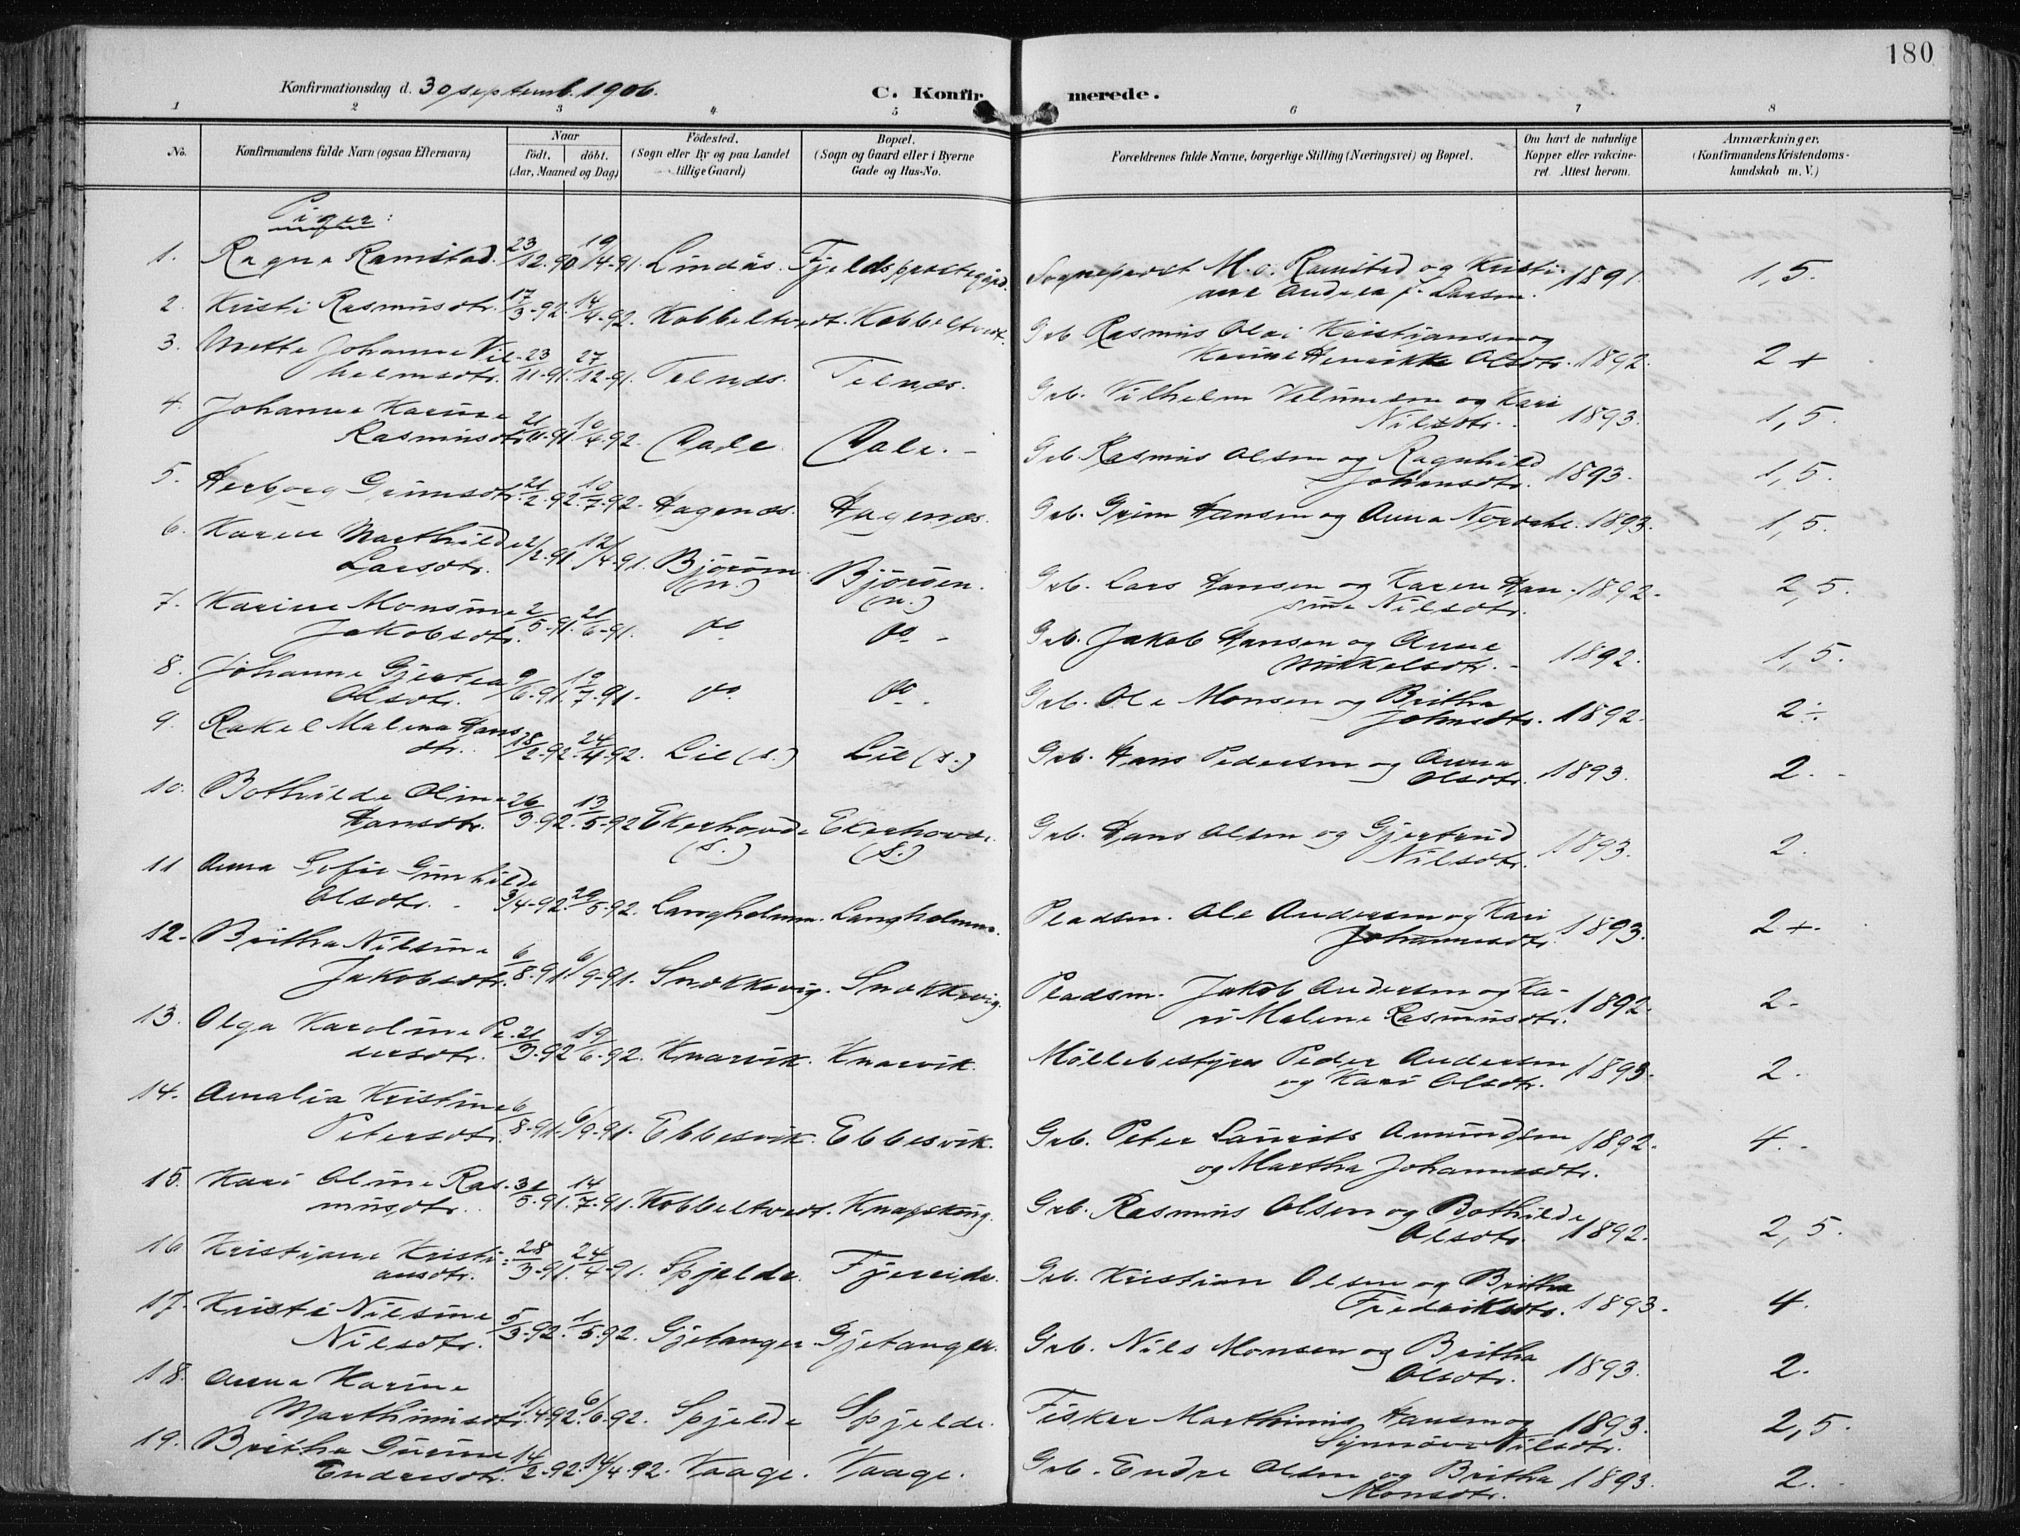 180
Konfirmationsdag d. 30 septemb. 1906.
C. Konfirmerede.
1 2 3 4 5 6 7 8
No.
Konfirmandens fulde Navn (ogsaa Efternavn)
Naar
født, døbt.
(Aar, Maaned og Dag)
Fødested.
(Sogn eller By og paa Landet
tillige Gaard)
Bopæl.
(Sogn og Gaard eller i Byerne
Gade og Hus-No.
Forældrenes fulde Navne, borgerlige Stilling (Næringsvei) og Bopæl.
Om havt de naturlige
Kopper eller vakcine-
ret. Attest herom.
Anmærkninger.
(Konfirmandens Kristendoms-
kundskab m. V.)
Piger:
1. Ragna Ramstad. 23/12-90 19/4-91. Lindås. Fjelds prestegård. Sogneprest M. O. Ramstad og Kristi- 1891. 1,5.
ane Andrea f. Larsen.
2. Kristi Rasmusdtr. 17/3-92. 14/4-92. Kobbeltvedt. Kobbeltvedt. Grb. Rasmus Olai Kristiansen og
Karine Henrikke Olsdtr. 1892. 2+
3. Mette Johanne Vil- 23/11-91. 27/12-91. Telnæs. Telnæs.
helmsdtr. Grb. Vilhelm Velumsen og Kari
Nilsdtr. 1893. 1,5.
4. Johanne Karine
Rasmusdtr. 21/11-91 10/4-92. Dale. Dale. Grb. Rasmus Olsen og Ragnhild
Johansdtr. 1893. 1,5.
5. Herborg Grimsdtr. 21/2-92. 10/7-92. Hagenæs. Hagenæs. Grb. Grim Hansen og Anna Nordahl. 1893. 1,5.
6. Karen Marthilde 2/2-91 12/4-91. Bjørøen Bjørøen.
Larsdtr. (n.) (n.) Grb. Lars Hansen og Karen Han- 1892. 2,5.
sine Nilsdtr.
7. Karine Monsine 2/5-91. 21/6-91. do do
Jakobsdtr. Grb. Jakob Hansen og Anne
Mikkelsdtr. 1892. 1,5.
8. Johanne Gjertea 9/6-91. 19/7-91. do do
Olsdtr. Grb. Ole Monsen og Britha
Johnsdtr. 1892. 2÷
9. Rakel Malena Hans
dtr. 18/2-92. 24/4-92. Lie (s.) Lie (s.) Grb. Hans Pedersen og Anna
Olsdtr. 1893. 2.
10. Bothilde Oline 26/3-92. 13/5-92 Ekerhovde Ekerhovd.
Hansdtr. (s.) (s.) Grb. Hans Olsen og Gjertrud
Nilsdtr. 1893. 2.
11 Anna Sofie Gunhilde
Olsdtr. 3/4-92. 29/5-92. Langholmen. Langholmen. Pladsm. Ole Andersen og Kari
Johannesdtr. 1893. 2+.
12. Britha Nilsine
Jakobsdtr. 6/8-91. 6/9-91. Snekkevig. Snekkevig. Pladsm. Jakob Andersen og Ka-
ri Malene Rasmusdtr. 1892. 2.
13. Olga Karoline Pe- 21/3-92 19/6-92. Knarvik. Knarvik.
dersdtr. Møllebestyrer Peder Andersen
og Kari Olsdtr. 1893. 2.
14. Amalia Kristine
Petersdtr. 6/8-91. 6/9-91. Ebbesvik. Ebbesvik. Grb. Peter Laurits Amundsen 1892. 4.
og Martha Johannesdtr.
15. Kari Oline Ras- 31/5-91. 14/7-91. Kobbeltvedt. Knapskog.
musdtr. Grb. Rasmus Olsen og Bothilde
Olsdtr. 1892. 2,5.
16 Kristiane Kristi- 28/3-91. 24/4-91. Spjelde. Fjereide.
ansdtr. Grb. Kristian Olsen og Britha
Fredriksdtr. 1893. 4.
17. Kristi Nilsine
Nilsdtr. 5/3-92. 1/5-92. Gjetanger Gjetanger. Grb. Nils Monsen og Britha
Olsdtr. 1893. 2.
18. Anna Karine
Marthinusdtr. 1/4-92. 6/6-92. Spjelde Spjelde. Fisker Marthinus Hansen og
Synnøve Nilsdtr. 1893. 2,5.
19. Britha Gurine
Endresdtr. 14/2-92. 14/4-92. Vaage. Vaage. Grb. Endre Olsen og Britha
Monsdtr. 1893. 2.